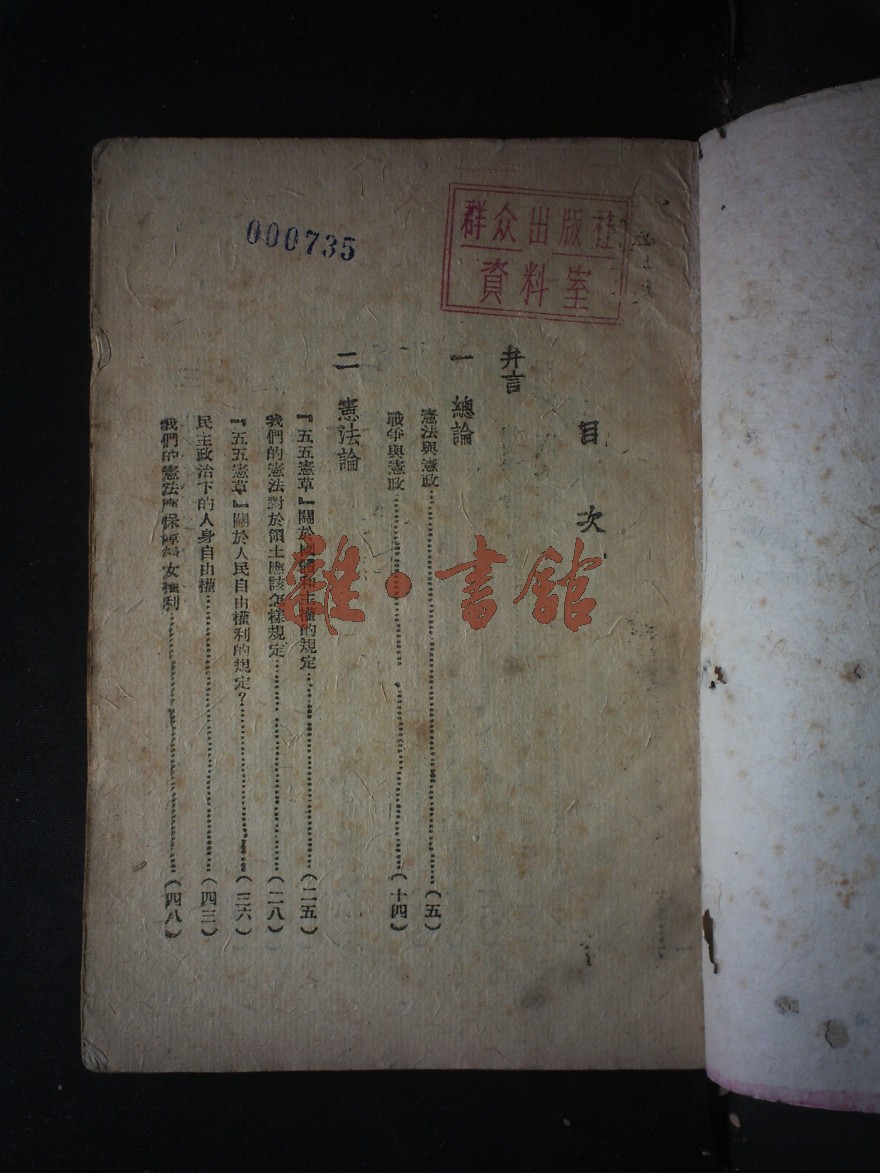 000735
群众出版社
資料室
目次
弁言
一 總論
憲法與憲政……(五)
戰爭與憲政……(十四)
二 憲法論
『五五憲草』關於國體和主權的規定……(二五)
我們的憲法對於領土應該怎樣規定……(二八)
『五五憲草』關於人民自由權利的規定？……(三六)
民主政治下的人身自由權……(四三)
我們的憲法應保障婦女權利……(四八)
雜·書館